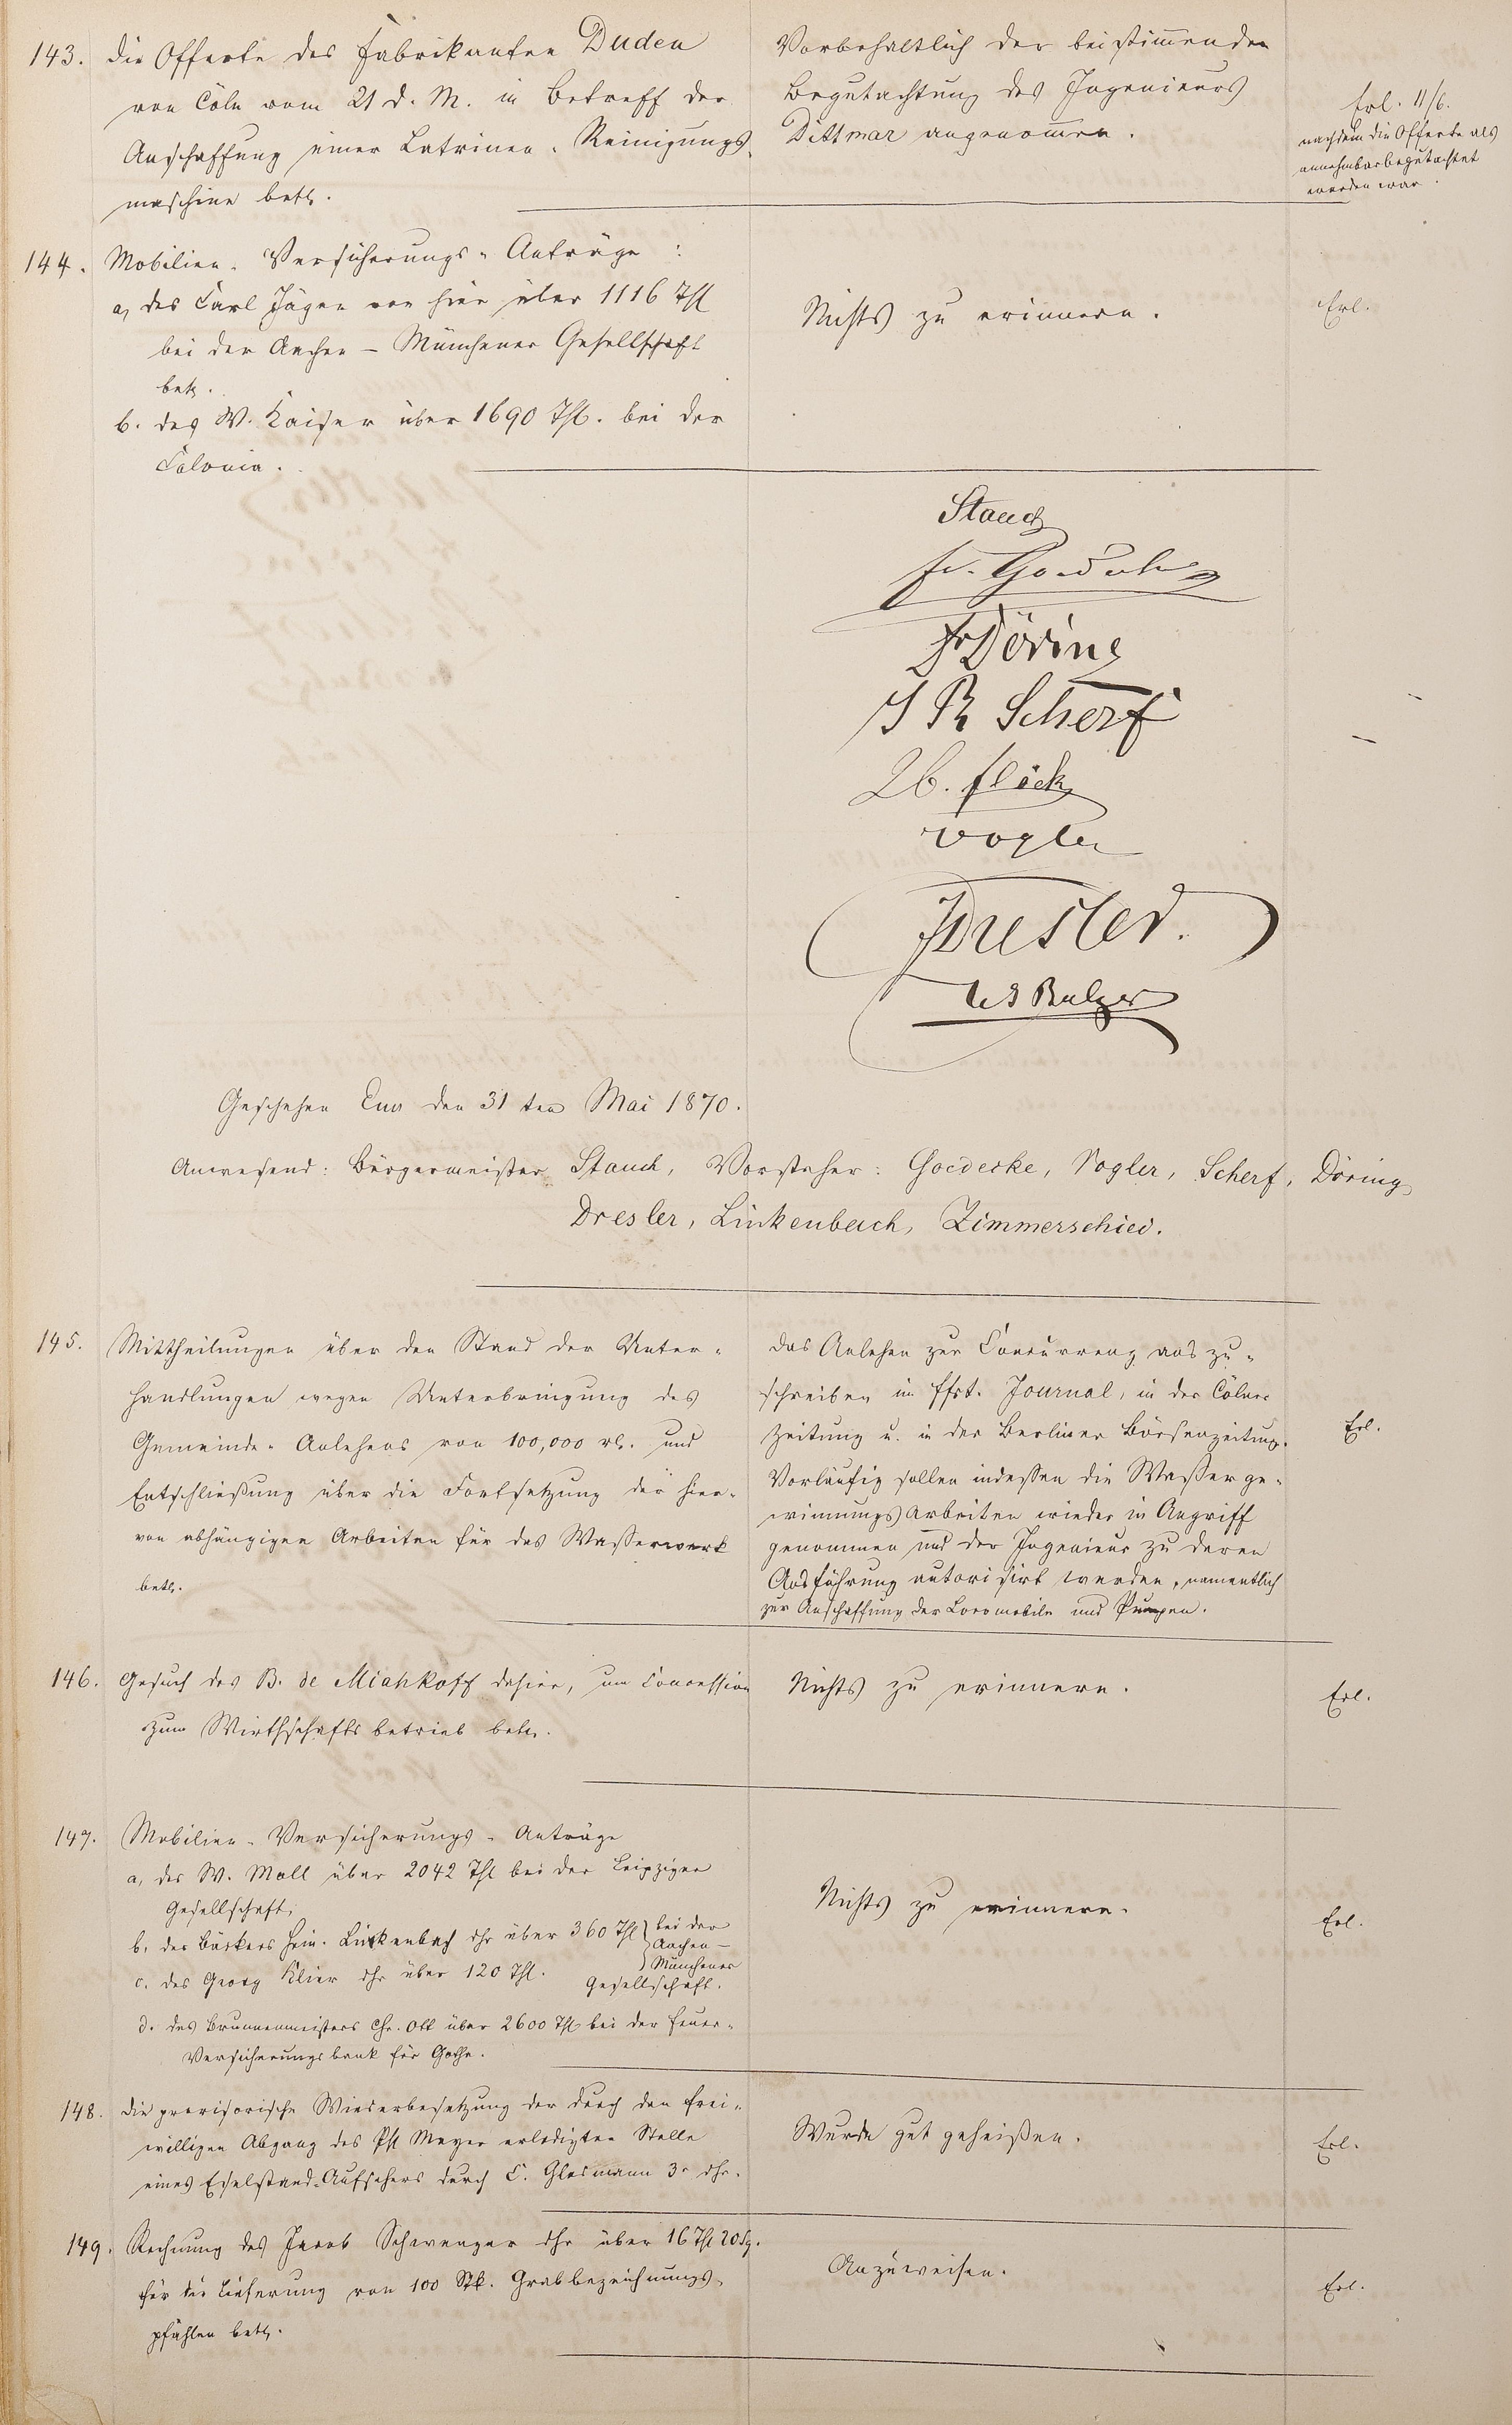 143. Die Offerte des Fabrikanten Duden
von Cöln vom 21 d. M. in Betreff der
Anschaffung einer Latrinen-Reinigungs-
maschine betr.
Vorbehaltlich der beistimmenden
Begutachtung des Ingenieurs
Dittmar angenommen.
Erl. 11/6.
nachdem die Offerte als
annehmbar begutachtet
worden war.
144. Mobilien-Versicherungs-Anträge:
a, des Carl Jäger von hier über 1116 Thl
bei der Aachen-Münchener Gesellschaft
betr.
b. des W. Kaiser über 1690 Thl. bei der
Colonia.
Nichts zu erinnern.
Erl.
Stauch
Fr. Goedecke
Fr Döring
J R Scherf
Vogler
Dresler.
Balzer
Geschehen Ems den 31ten Mai 1870.
Anwesend: Bürgermeister Stauch, Vorsteher: Goedecke, Vogler, Scherf, Döring,
Dresler, Linkenbach, Zimmerschied.
145. Mittheilungen über den Stand der Unter-
handlungen wegen Unterbringung des
Gemeinde-Anlehens von 100,000 rl. und
Entschließung über die Fortsetzung der hier-
von abhängigen Arbeiten für das Wasserwerk
betr.
Das Anlehen zur Concurrenz aus zu-
schreiben im Ffrt. Journal, in der Cölner
Zeitung u. in der Berliner Börsenzeitung.
Vorläufig sollen indessen die Wasserge-
winnungsarbeiten wieder in Angriff
genommen und der Ingenieur zu deren
Ausführung autorisirt werden, namentlich
zur Anschaffung der Locomobile und Pumpen.
Erl.
146. Gesuch des B. de Miahkoff dahier, um Concession
zum Wirthschaftsbetrieb betr.
Nichts zu erinnern.
Erl.
147. Mobilien-Versicherungs-Anträge
a, des W. Moll über 2042 Thl bei der Leipziger
Gesellschaft,
b, des Bäckers Hein. Linkenbach dhr über 360 Thl
c. des Georg Klier dhr über 120 Thl.
bei der
Aachen-
Münchener
Gesellschaft.
d. des Brunnenmeisters Chr. Ott über 2600 Thl bei der Feuer-
Versicherungsbank für Gotha.
Nichts zu erinnern.
Erl.
148. Die provisorische Wiederbesetzung der durch den frei-
willigen Abgang des Ph Meyer erledigten Stelle
eines Eselstand-Aufsehers durch C. Glasmann 3r dhr.
Wurde gut geheißen.
Erl.
149. Rechnung des Jacob Schwenger dhr über 16 Thl 20 Sg.
für die Lieferung von 100 Stk. Grabbezeichnungs-
pfählen betr.
Anzuweisen.
Erl.